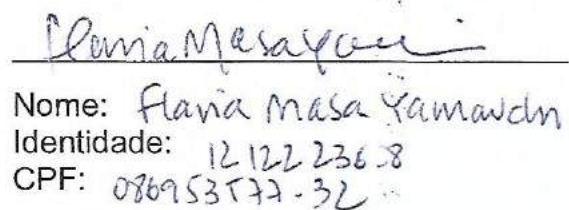 Flavia Masa
Nome: Flavia Masa
Identidade: 12122236-8
CPF: 086953577-32